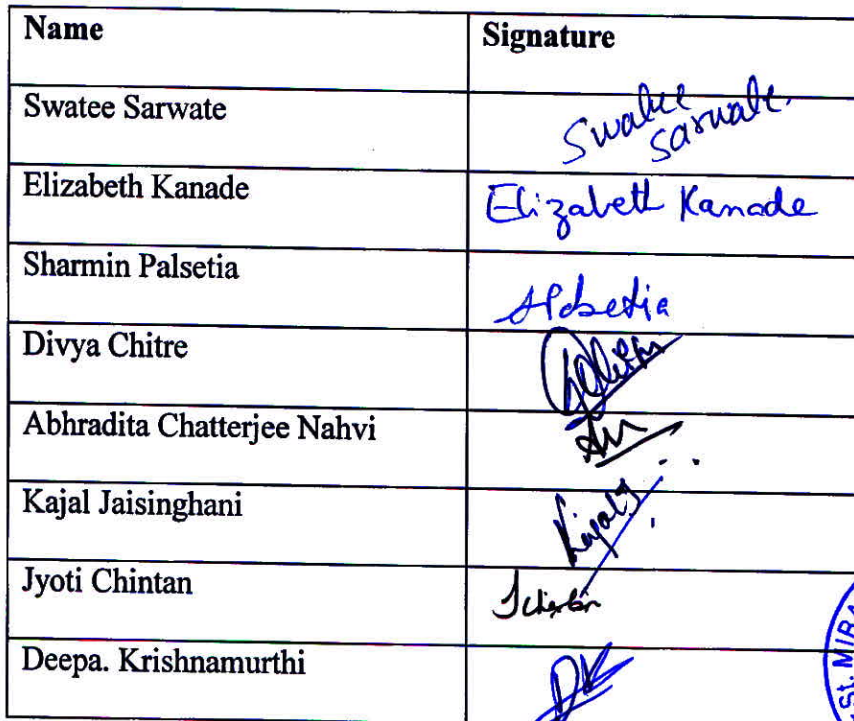 Name Signature
Swatee Sarwate Swatee
Sarwate.
Elizabeth Kanade Elizabeth Kanade
Sharmin Palsetia SPalsetia
Divya Chitre
Abhradita Chatterjee Nahvi
Kajal Jaisinghani KajalJ
Jyoti Chintan JChintan
Deepa. Krishnamurthi DK
St. MIRA